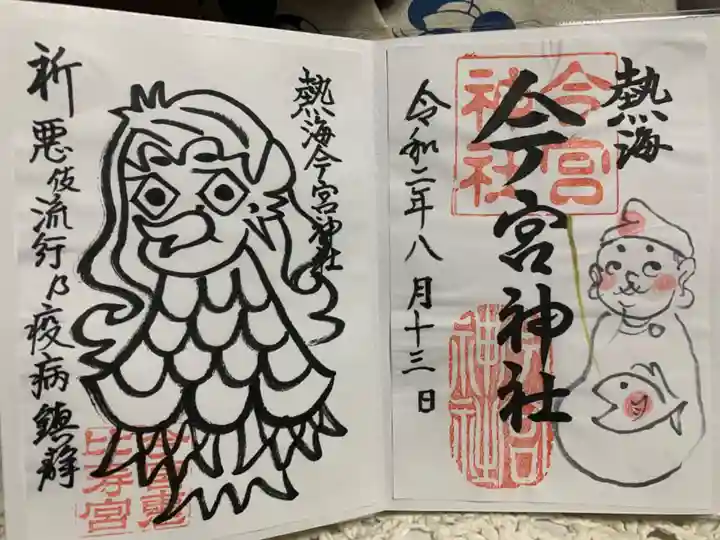 熱海
今宮神社
今宮
神社
令和二年八月十三日
熱海今宮神社
祈悪伎流行乃疫病鎮静